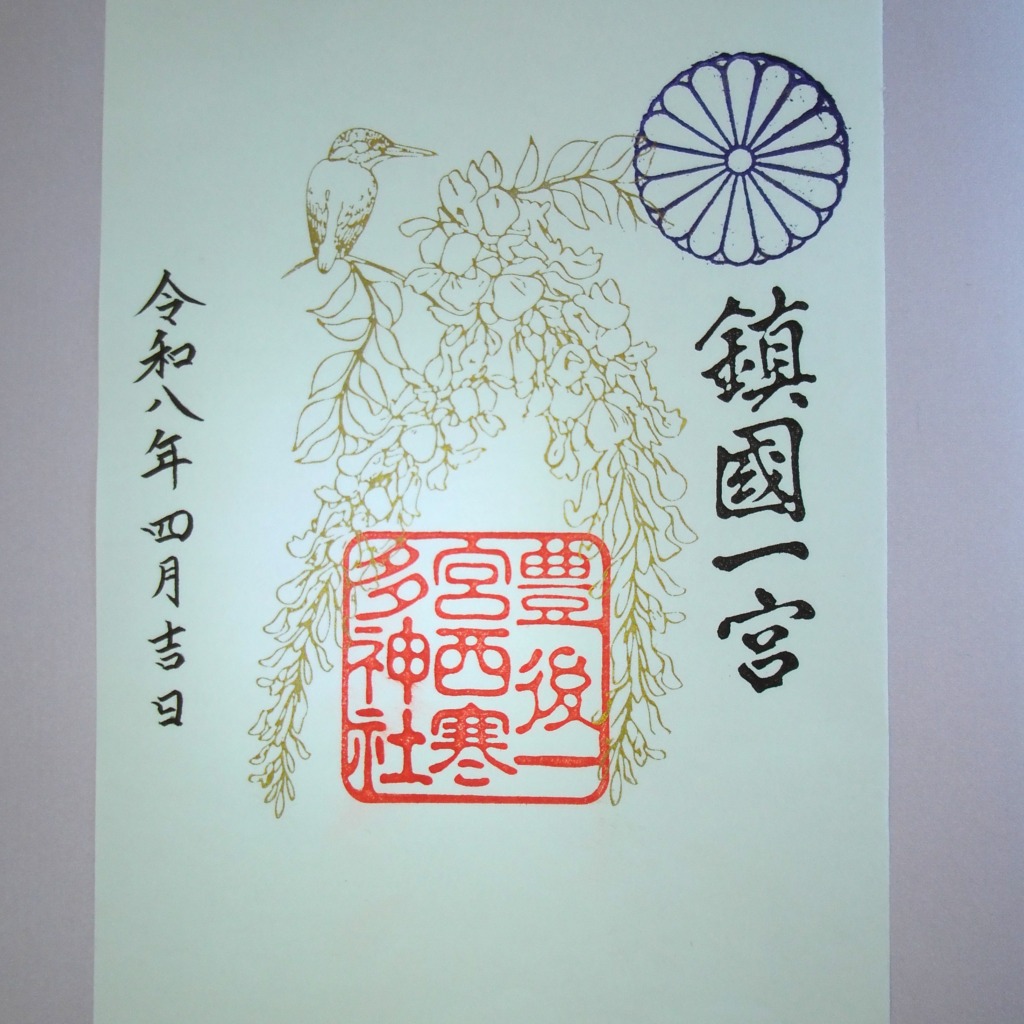 鎮國一宮
豊後一
宮西寒
多神社
令和八年四月吉日